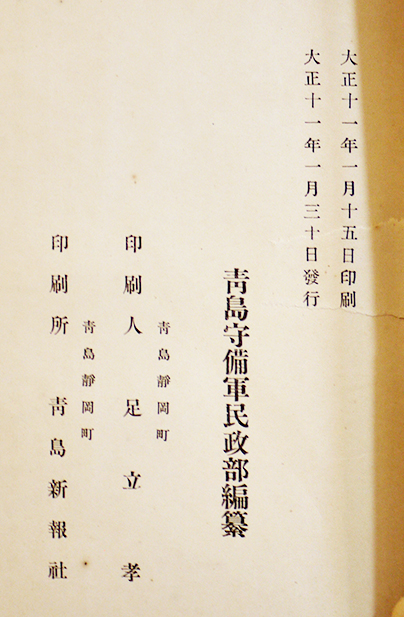 大正十一年一月十五日印刷
大正十一年一月三十日發行
靑島守備軍民政部編纂
靑島靜岡町
印刷人 足立孝
靑島靜岡町
印刷所 靑島新報社